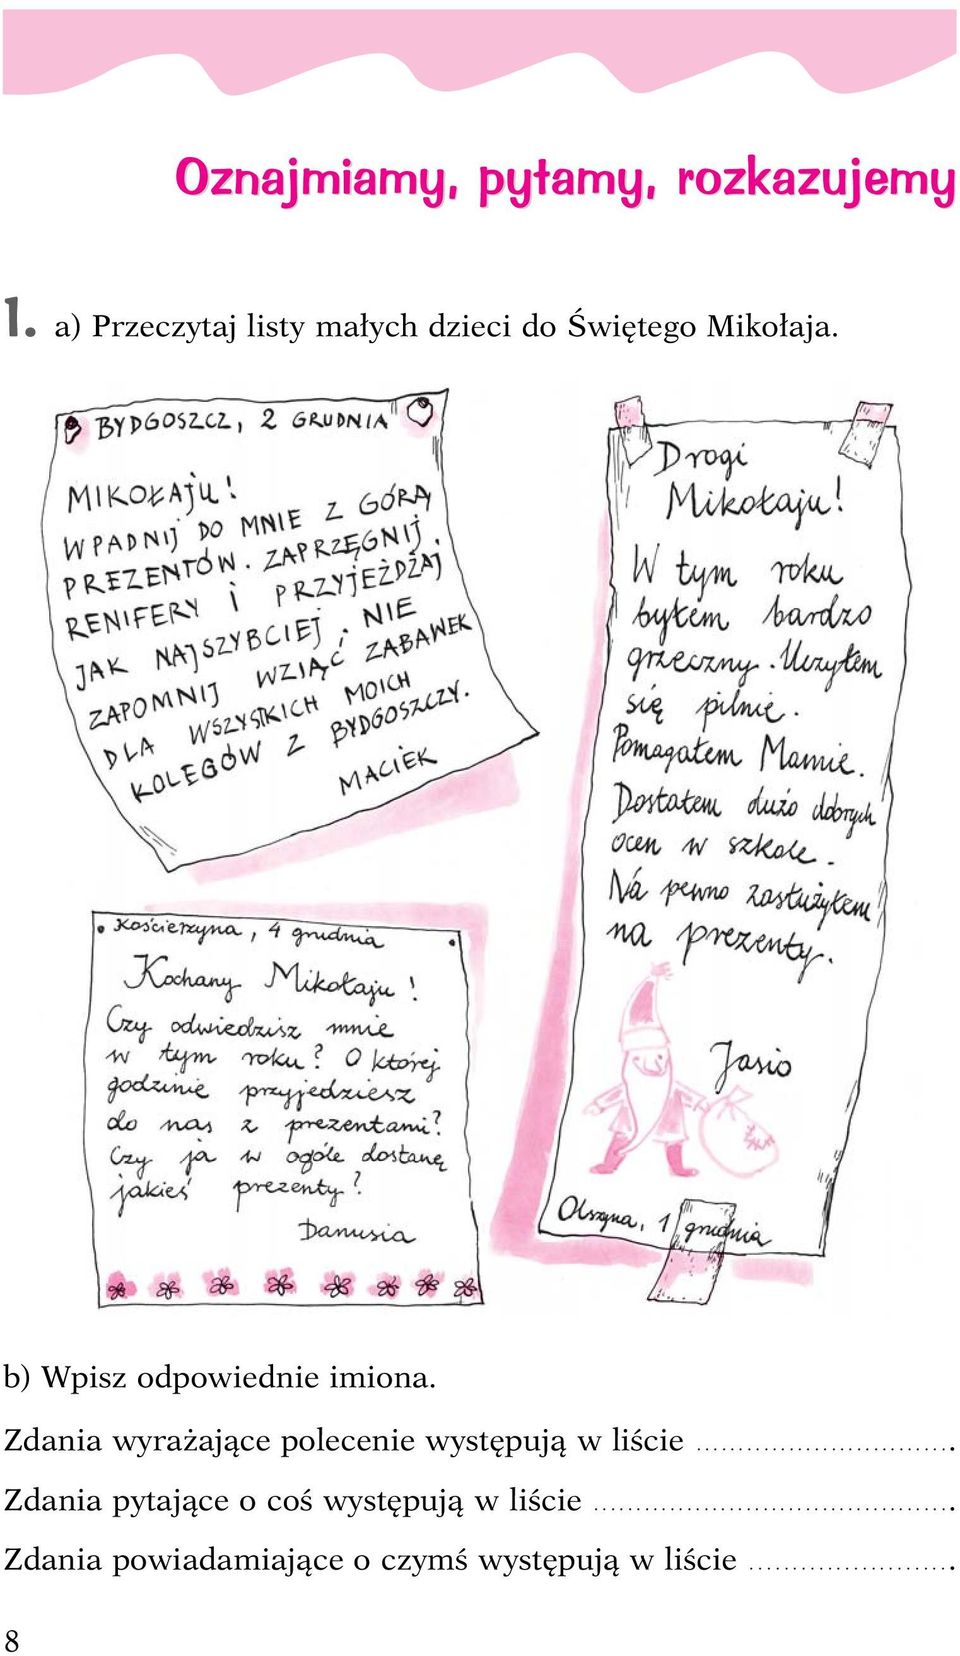 Oznajmiamy, pytamy, rozkazujemy
1. a) Przeczytaj listy małych dzieci do Świętego Mikołaja.
BYDGOSZCZ, 2 GRUDNIA
MIKOŁAJU!
WPADNIJ DO MNIE Z GÓRĄ
PREZENTÓW. ZAPRZĘGNIJ
RENIFERY I PRZYJEŻDŻAJ
JAK NAJSZYBCIEJ, NIE
ZAPOMNIJ WZIĄĆ ZABAWEK
DLA WSZYSTKICH MOICH
KOLEGÓW Z BYDGOSZCZY.
MACIEK
Drogi
Mikołaju!
W tym roku
byłem bardzo
grzeczny. Uczyłem
się pilnie.
Pomagałem Mamie.
Dostałem dużo dobrych
ocen w szkole.
Na pewno zasłużyłem
na prezenty.
Jasio
Olszyna, 1 grudnia
Kościerzyna, 4 grudnia
Kochany Mikołaju!
Czy odwiedzisz mnie
w tym roku? O której
godzinie przyjedziesz
do nas z prezentami?
Czy ja w ogóle dostanę
jakieś prezenty?
Danusia
b) Wpisz odpowiednie imiona.
Zdania wyrażające polecenie występują w liście ................................
Zdania pytające o coś występują w liście ...........................................
Zdania powiadamiające o czymś występują w liście ........................
8